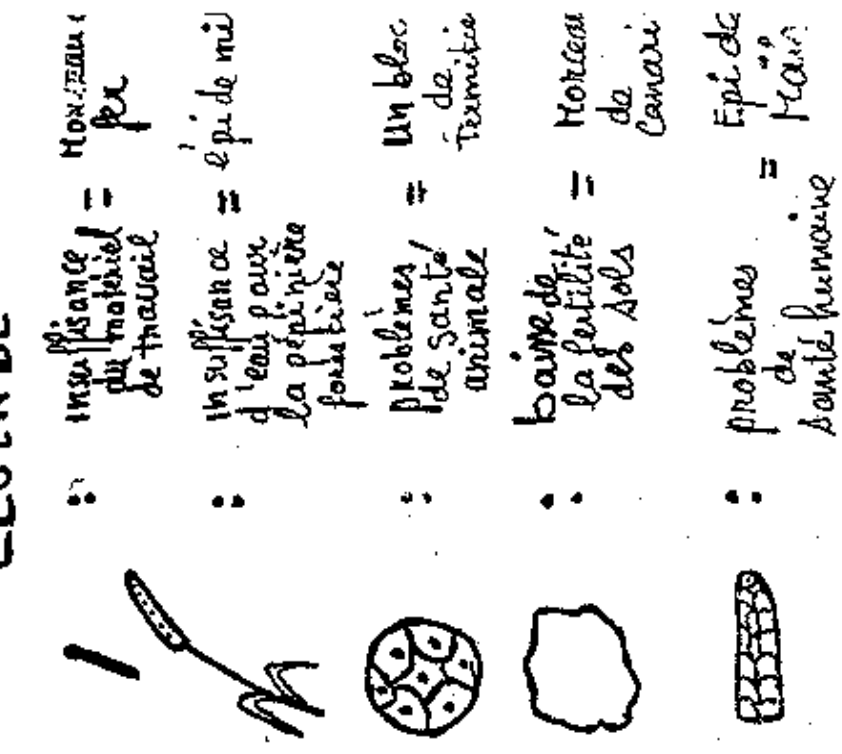 LEGENDE
: insuffisance du matériel de travail = Morceau fer
: insuffisance d'eau pour la pépinière forestière = épi de mil
: problèmes de santé animale = Un bloc de Termitière
: baisse de la fertilité des sols = Morceau de Canari
: problèmes de santé humaine = Epi de Maïs